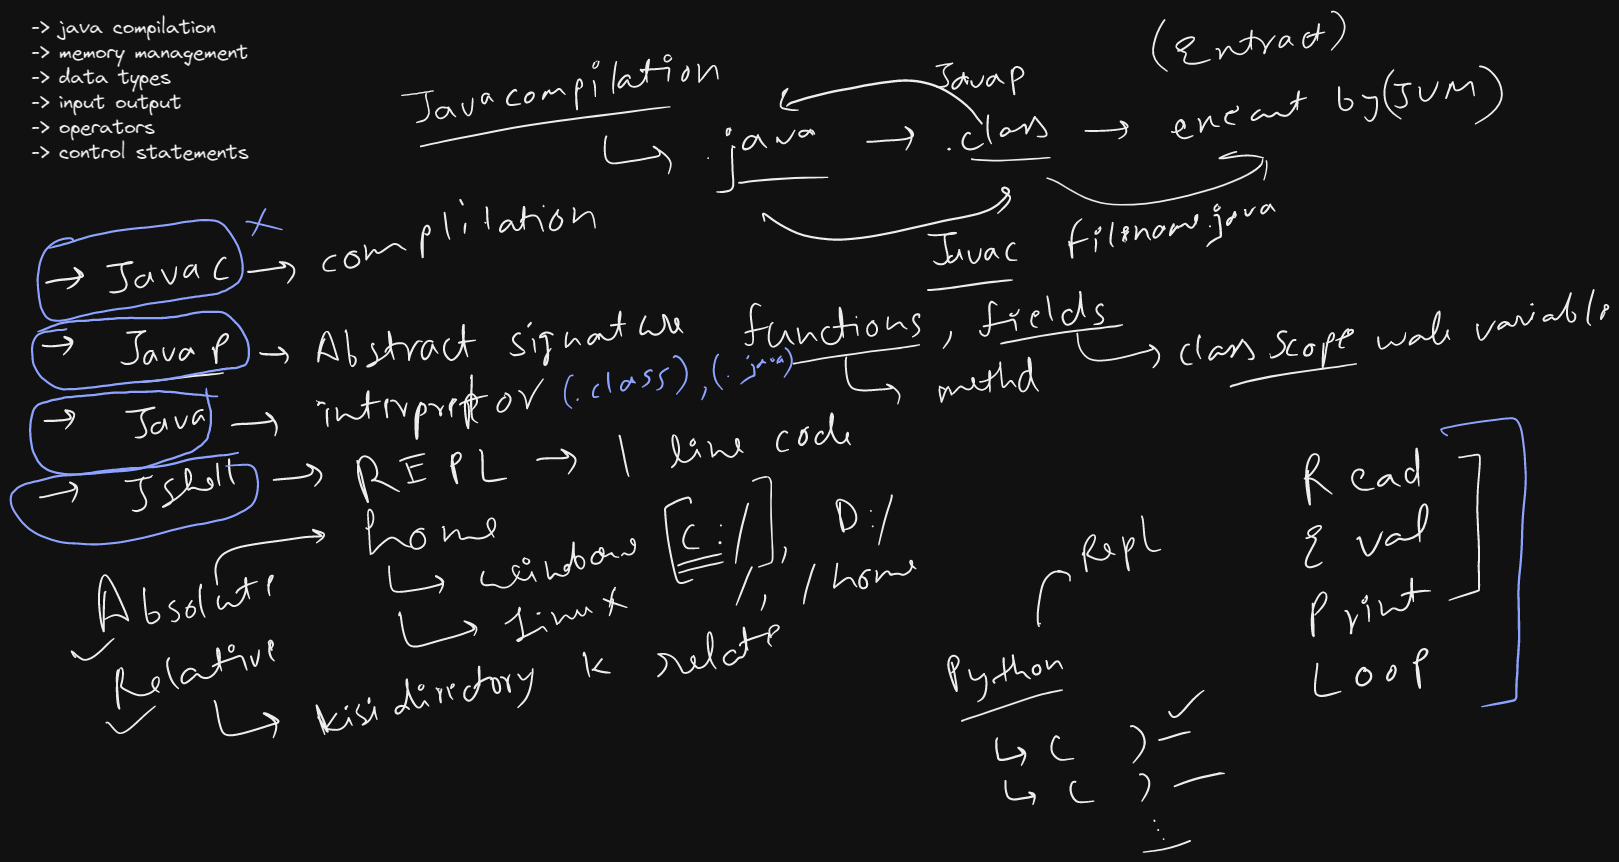 -> java compilation
-> memory management
-> data types
-> input output
-> operators
-> control statements
Java compilation
.java → .class → by (JVM)
Javap
Javac
filename.java
→ Javac → complilation
x
→ Javap → Abstract signature functions, fields
methd
class scope wale variable
→ Java → (.class), (.java)
→ Jshell → REPL → 1 line code
Absolute
home
window [C:/], D:/
linux /, /home
Relative
kisi directory k relate
Python
Repl
( )
( )
Read
Eval
Print
Loop